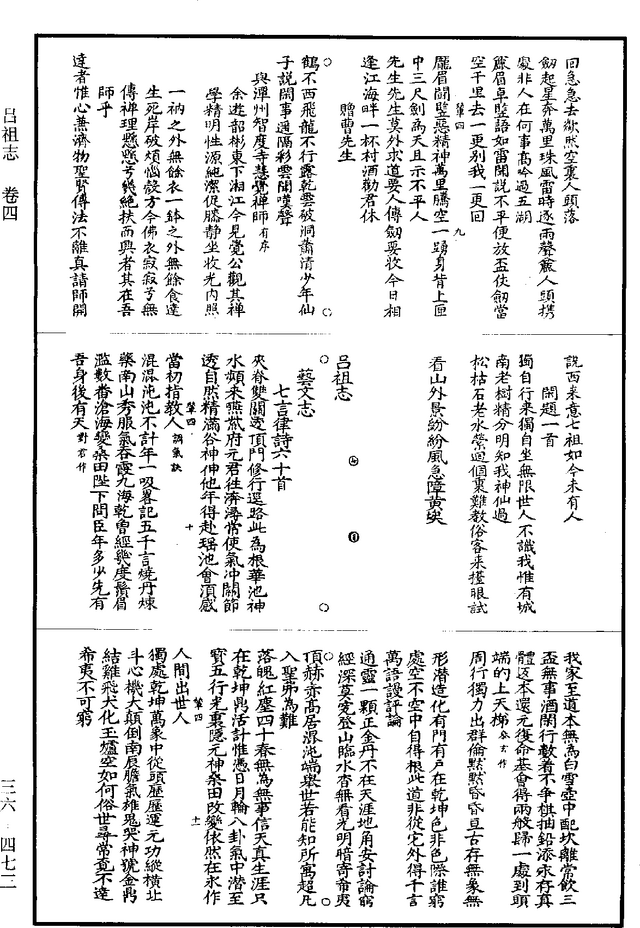 回急急去欻然空裏人頭落
劔起星奔萬里珠風雷時逐雨聲麄人頭携
處非人在何事高吟過五湖
麄眉卓竪語如雷聞說不平便放盃仗劔當
空千里去一更别我一更回
第四 九
龎眉闘竪惡精神萬里騰空一踴身背上匣
中三尺劍為天且示不平人
先生先生莫外求道要人傳劔要收今日相
逢江海畔一杯村酒勸君休
贈曹先生
鶴不西飛龍不行露乾雲破洞蕭清少年仙
子說閑事遥隔彩雲聞嘆聲
與潭州智度寺慧覺禪師有序
余遊韶彬東下湘江今見覺公觀其禪
學精明性源純潔促膝静坐收光内照
一衲之外無餘衣一鉢之外無餘食達
生死岸破煩惱殼方今佛衣寂寂兮無
傳禪理懸懸兮幾絶扶而興者其在吾
師乎
達者惟心兼濟物聖賢傳法不離真請師開
說西来意七祖如今未有人
閑題一首
獨自行来獨自坐無限世人不識我惟有城
南老樹精分明知我神仙過
松枯石老水縈迴個裏難教俗客来擡眼試
看山外景紛紛風急障黄矣
吕祖志
藝文志
七言律詩六十首
夾脊雙關透頂門修行逕路此為根華池神
水頻来嚥紫府元君往濟常使氣冲關節
透自然精滿谷神伸他年得赴瑶池會頂感
當初指教人調氣訣
第四 十
混混沌沌不計年一吸畧記五千言燒丹煉
藥南山秀服氣吞霞九海乾曾經幾度鬚眉
濫數番滄海變桑田陛下問臣年多少先有
吾身後有天對君作
我家至道本無為白雪壺中配坎離常飲三
盃無事酒閑行數着不争棋抽鉛添永存真
體返本還元復命基會得兩般歸一處到頭
端的上天梯参玄作
周行獨力出群倫黙黙昏昏亘古存無象無
形潜造化有門有戶在乾坤色非色際誰窮
處空不空中自得根此道非從它外得千言
萬語謾評論
通靈一顆正金丹不在天涯地角安討論窮
經深莫究登山臨水杳無看光明暗寄希夷
頂赫赤高居混沌端舉世若能知所寓超凡
入聖弗為難
落魄紅塵四十春無為無事信天真生涯只
在乾坤鼎活計惟憑日月輪八卦氣中潜至
寳五行光裏隱元神桑田改變依然在永作
第四 十一
人間出世人
獨處乾坤萬象中從頭歴歴運元功縱横北
斗心機大顛倒南辰膽氣雄鬼哭神號金鼎
結雞飛犬化玉爐空如何俗世尋常覓不達
希夷不可窮
吕祖志 卷四
三六·四七二